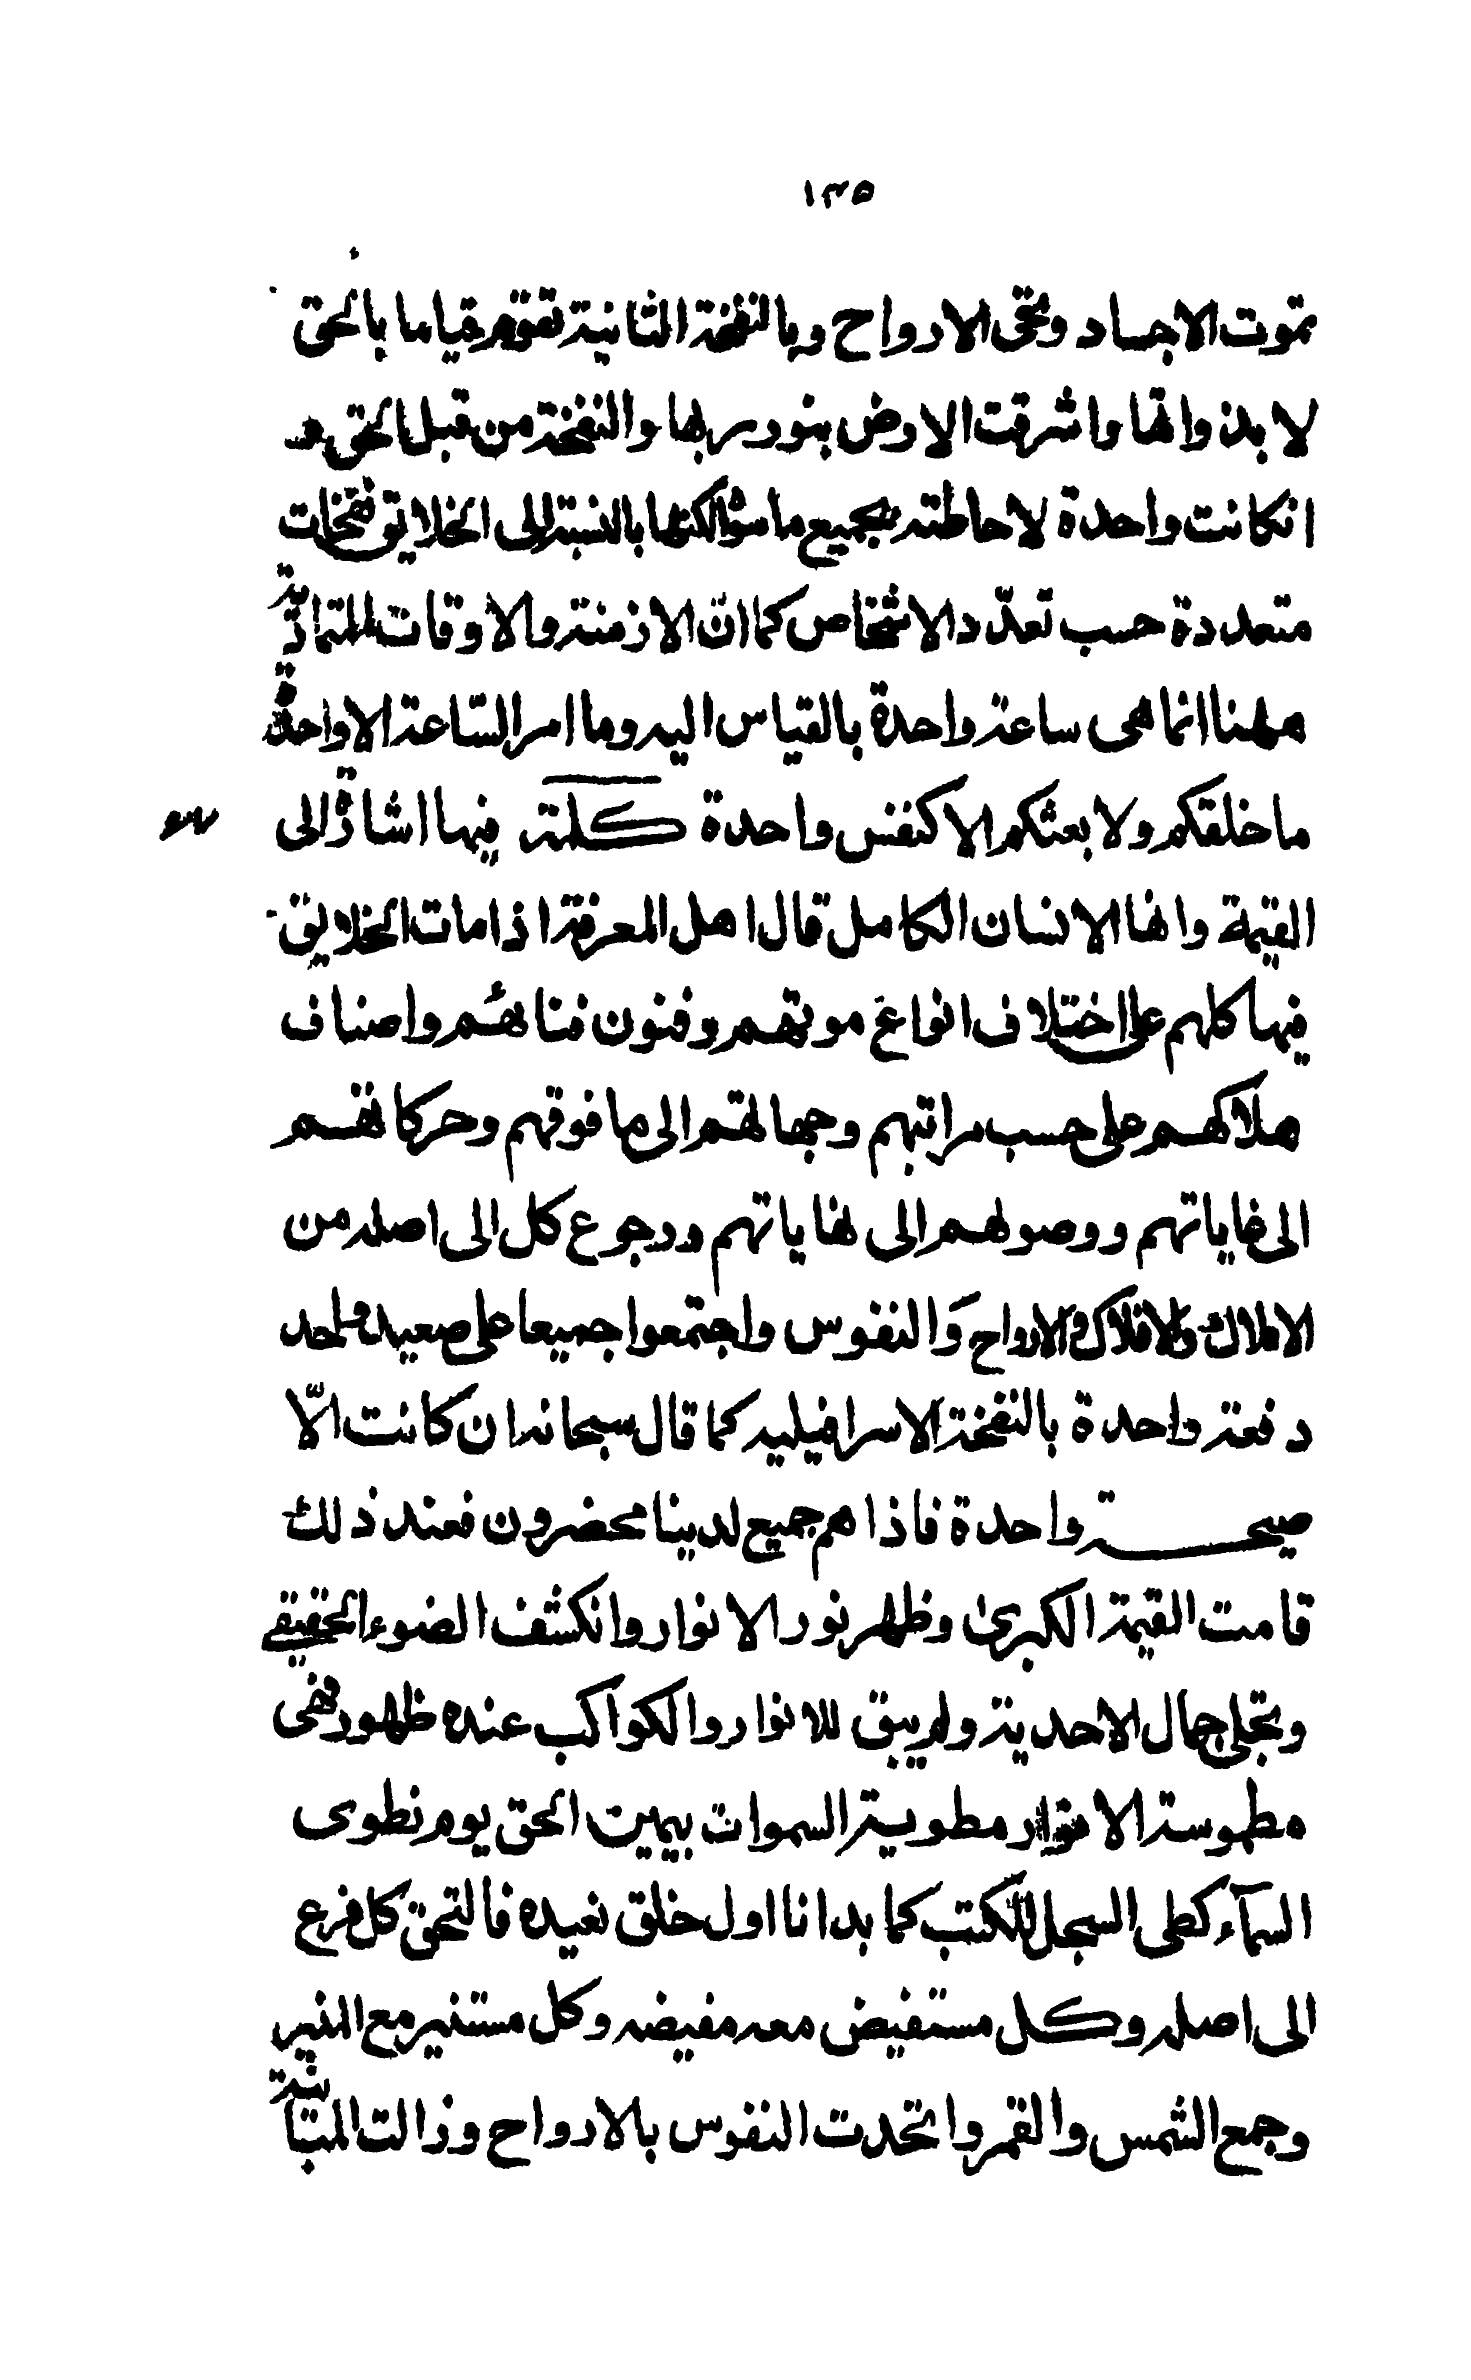 ١٣٥
تموت الاجساد وتحى الارواح وبالنفخة الثانية تقوم قياما بالحق
لا بذواتها واشرقت الارض بنور ربها والنفخة من قبل الحق و
انكانت واحدة لاحاطته بجميع ما سواه لكنها بالنسبة الى الخلايق نفخات
متعددة حسب تعدّد الاشخاص كما انّ الازمنة والاوقات المتمادّية
ههنا انما هى ساعة واحدة بالقياس اليه وما امر السّاعة الا واحدة
ما خلقكم ولا بعثكم الا كنفس واحدة كلمة فيها اشارة الى
القيمة وانها الانسان الكامل قال اهل المعرفة اذا مات الخلايق
فيها كلهم على اختلاف انواع موتهم وفنون فنائهم واصناف
هلاكهم على حسب مراتبهم وجهالتهم الى ما فوقهم وحركاتهم
الى غاياتهم ووصولهم الى نهاياتهم ورجوع كل الى اصله من
الاملاك والافلاك والارواح والنفوس واجتمعوا جميعا على صعيد واحد
دفعة واحدة بالنفخة الاسرافيليه كما قال سبحانه ان كانت الّا
صيحة واحدة فاذا هم جميع لدينا محضرون فعند ذلك
قامت القيمة الكبرى وظهر نور الانوار وانكشف الضوء الحقيقى
وتجلى جمال الاحدية ولم يبق للانوار والكواكب عنده ظهور فهى
مطموسة الانوار مطوية السموات بيمين الحق يوم نطوى
السمآء كطى السجل للكتب كما بدانا اول خلق نعيده فالتحق كل فرع
الى اصله وكل مستفيض معه مفيضه وكل مستنير مع المنير
وجمع الشمس والقمر واتحدت النفوس بالارواح وزالت المباينة